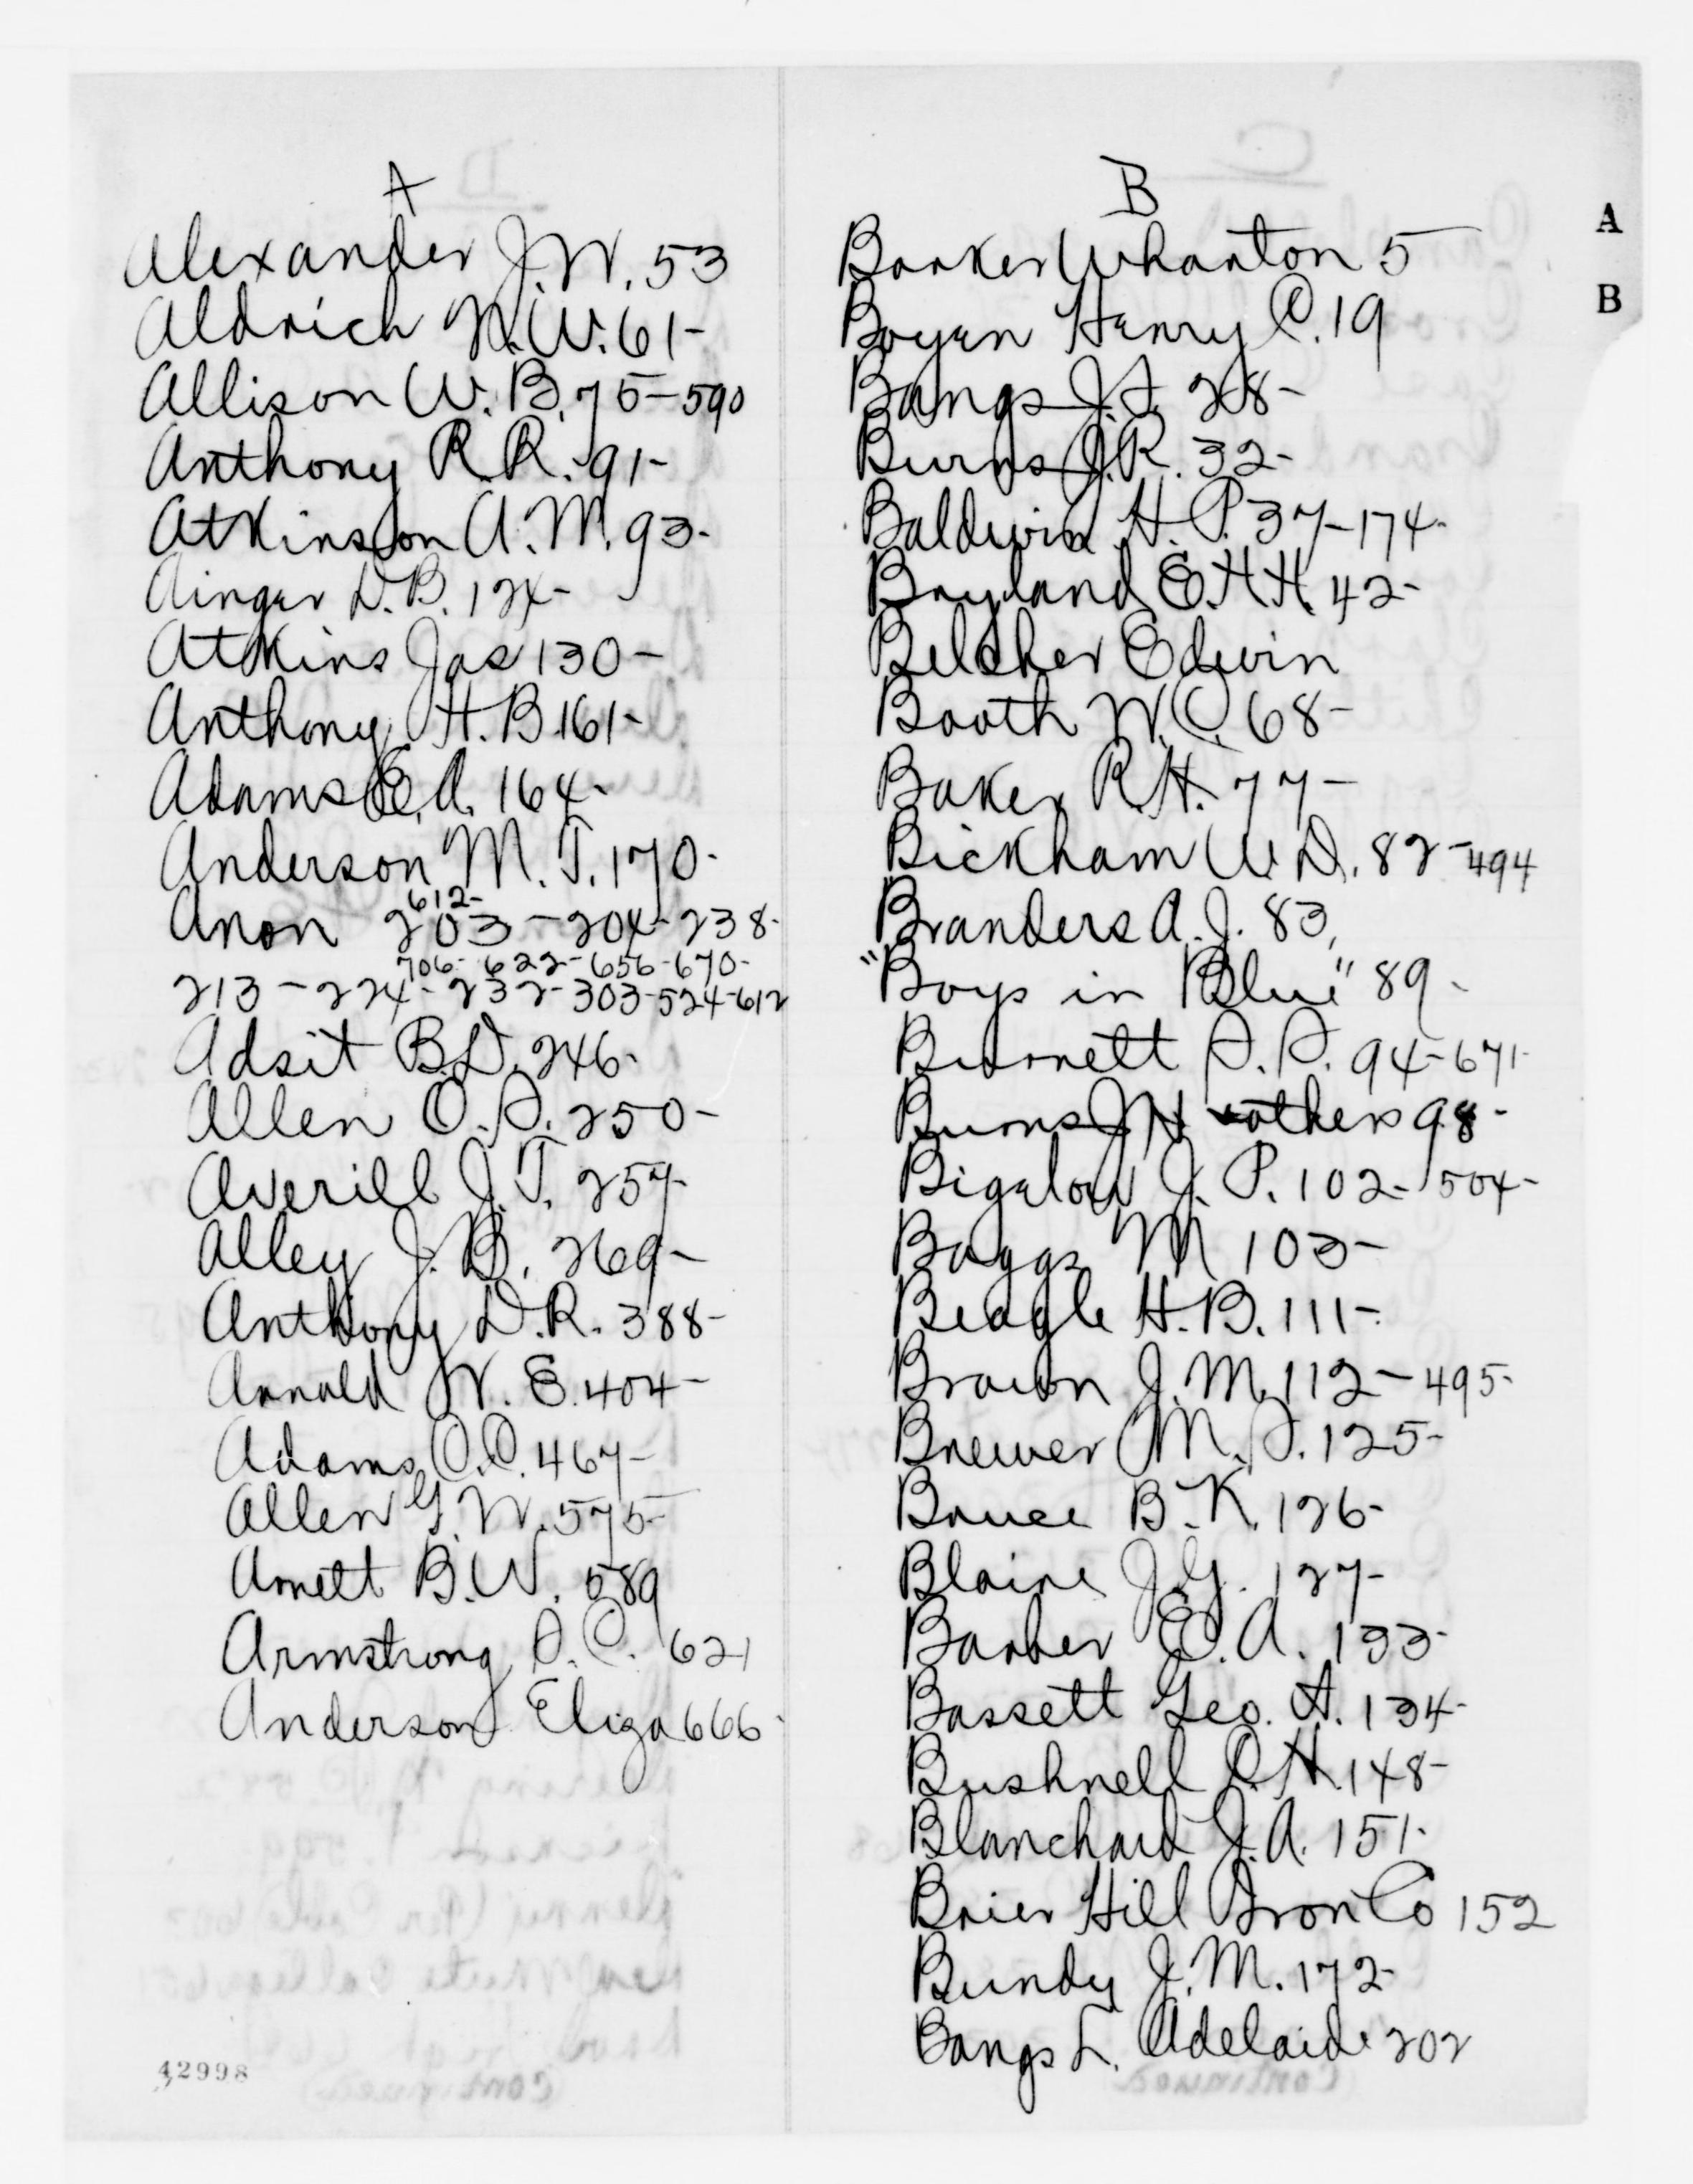 A
Alexander J.W. 53
Aldrich N.W. 61-
Allison W.B. 75-590
Anthony R.R. 91-
Atkinson A.M. 93-
Ainger D.B. 124-
Atkins Jas 130-
Anthony H.B. 161-
Adams E.A. 164-
Anderson M.T. 170-
612-
Anon 203-204-238-
706-622-656-670-
213-224-232-303-524-612
Adsit B.D. 246-
Allen O.S. 250-
Averill J.T. 257-
Alley J.B. 269-
Anthony D.R. 388-
Arnold W.E. 404-
Adams C.C. 467-
Allen G.W. 575-
Arnett B.W. 589
Armstrong S.C. 621
Anderson Eliza 666-
42998
B
Barker Wharton 5-
Boyen Henry C. 19
Bangs J.S. 28-
Burns J.R. 32-
Baldwin H.P. 37-174-
Bayland E.H.H. 42-
Belcher Edwin
Booth W.C. 68-
Baker R.H. 77-
Bickham W.D. 82-494
Branders A.J. 83,
"Boys in Blue" 89-
Burnett S.S. 94-671-
Burns J.H. & others 98-
Bigelow J.P. 102-504-
Baggs M 103-
Beagle H.B. 111-
Brown J.M. 112-495-
Brewer M.S. 125-
Bruce B.K. 126-
Blaine J.G. 127-
Barber E.A. 133-
Bassett Geo. A. 134-
Bushnell C.H. 148-
Blanchard J.A. 151-
Brier Hill Iron Co 152
Bundy J.M. 172-
Bangs L. Adelaide 202
A
B